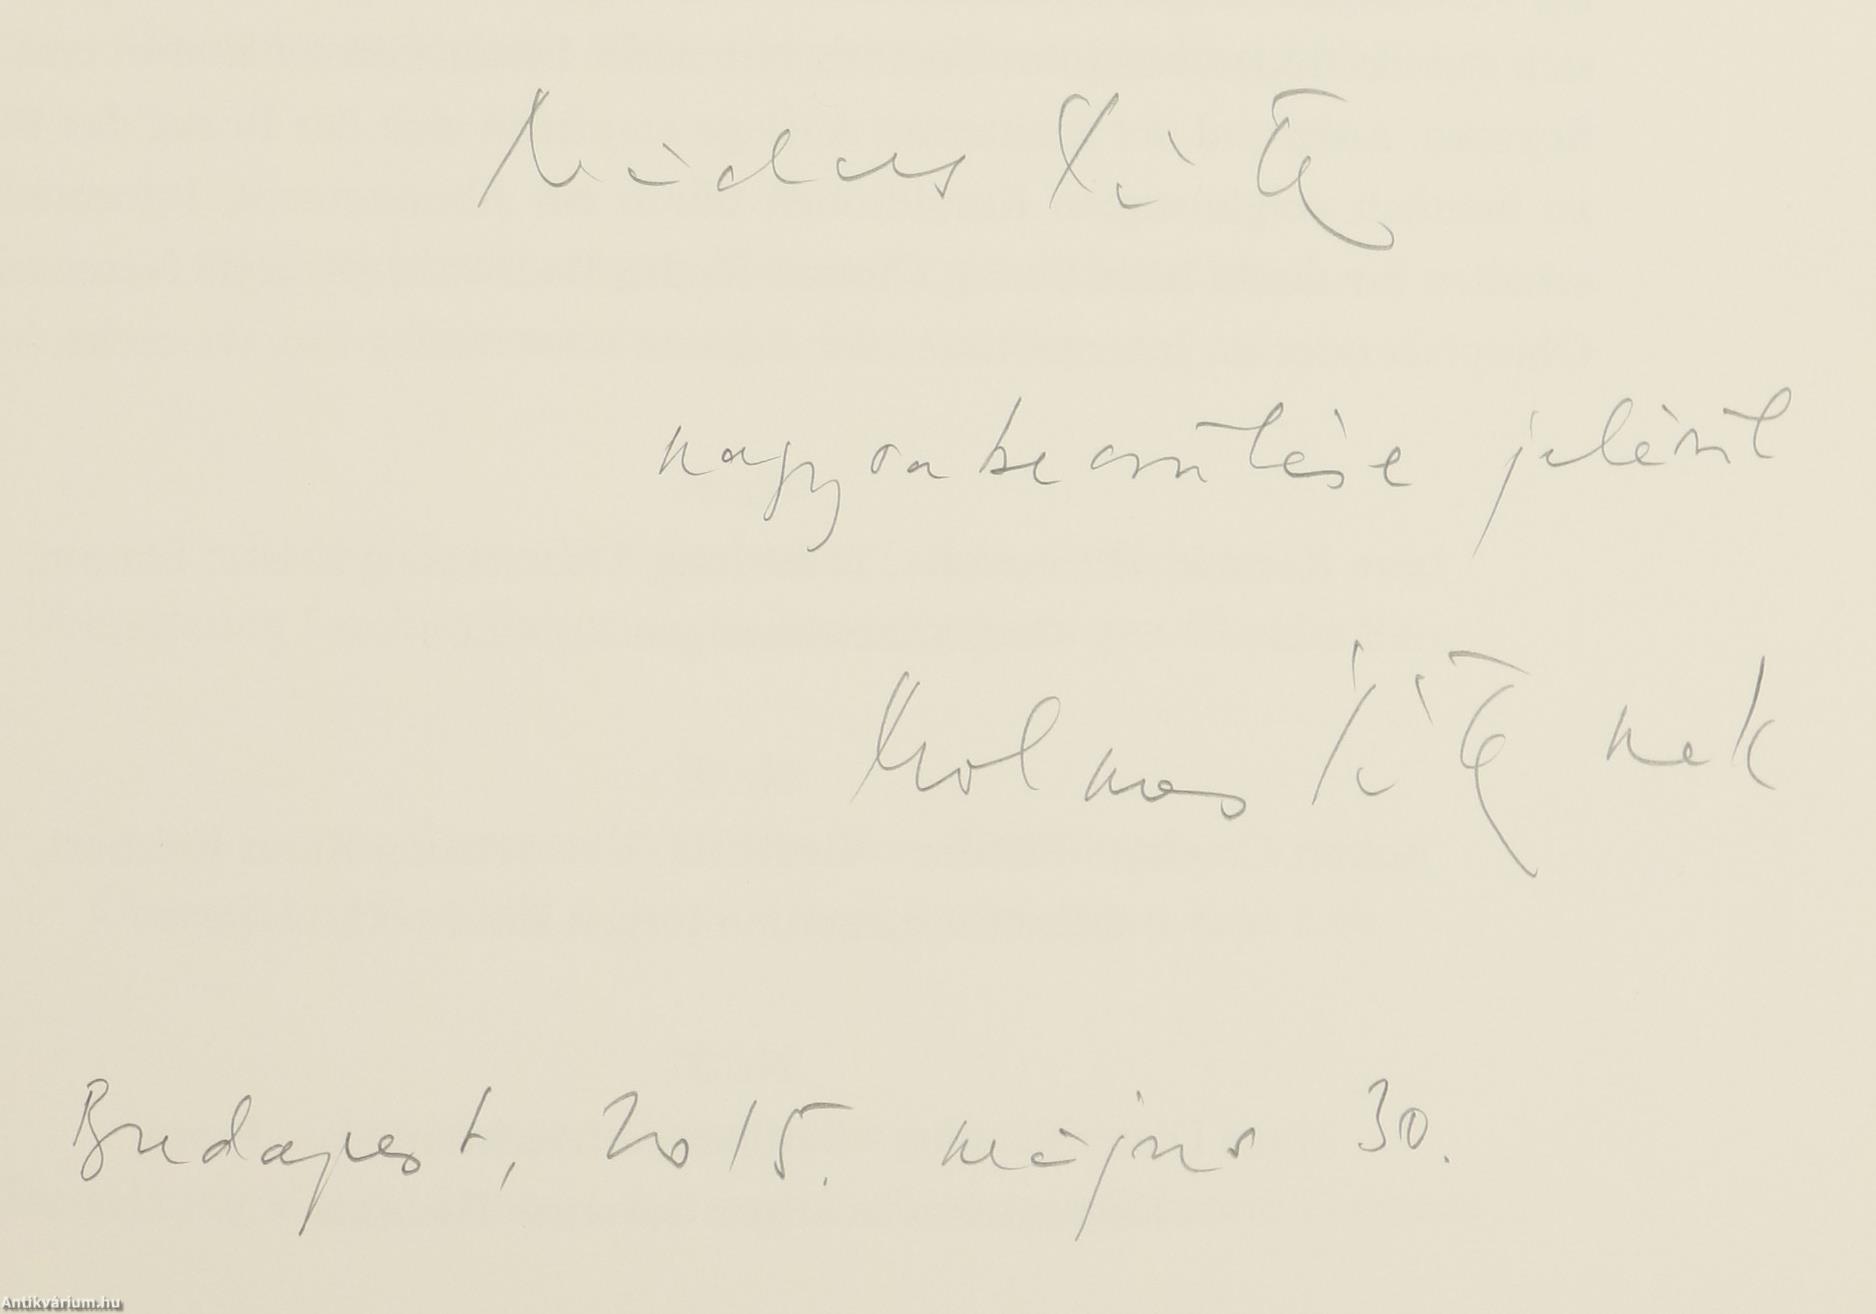 Nádas Péter
nagyrabecsülése jeléül
Molnár Péternek
Budapest, 2015. május 30.
Antikvárium.hu